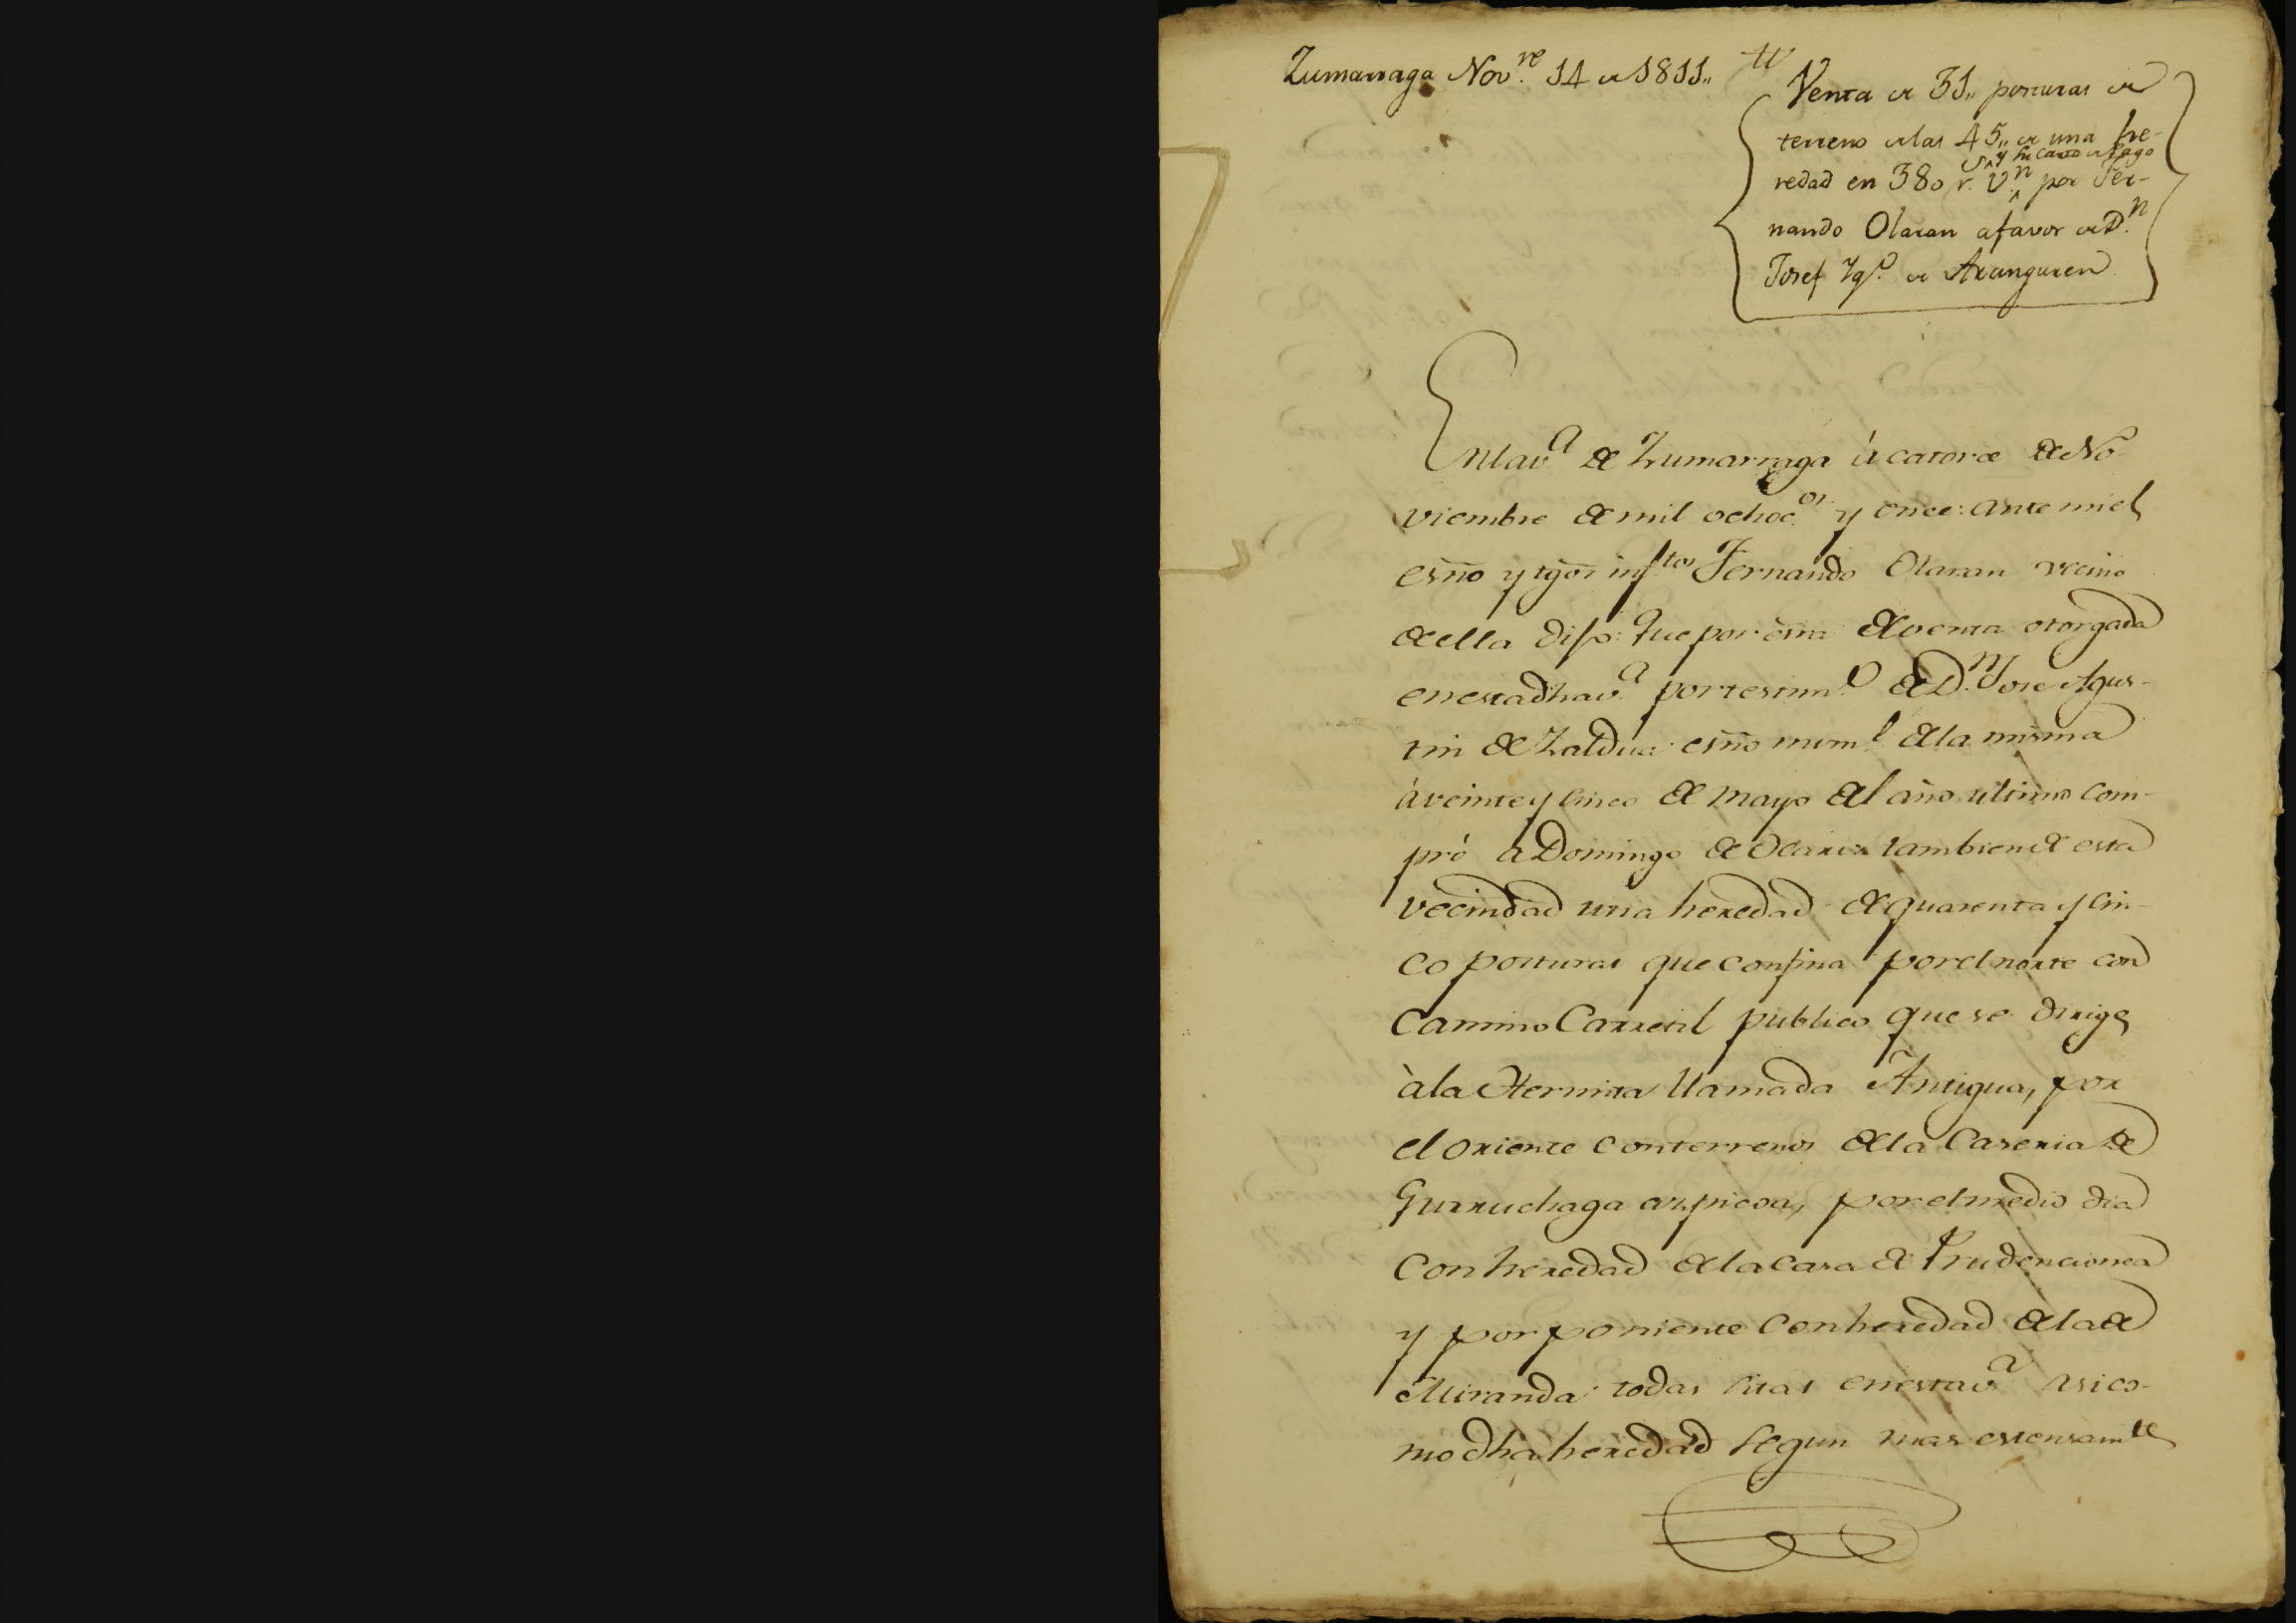 Zumarraga Nov.re 14 de 1811,,
Venta de 31,, posturas de
terreno de las 45,, de una he-
y su carta de pago
redad en 380 r.s V.n por Fer-
nando Olaran a favor de D.n
Josef Ygn.o de Aranguren
En la v.a de Zumarraga à catorce de No
viembre de mil ochoc.os y once: ante mi el
esño y tgõs inf.tos Fernando Olaran vecino
de ella dijo: Que por esra de venta otorgada
en esta dha v.a por testim.o de D.n Jose Agus-
tin de Zaldua esño num.l de la misma
à veinte y cinco de Mayo del año ultimo com-
prò a Domingo de tambien de esta
vecindad una heredad de quarenta y cin-
co posturas que confina por el norte con
Camino Carretil publico que se dirige
à la Hermita llamada Antigua, por
el oriente con terrenos de la Caseria de
Gurruchaga azpicoa, por el medio dia
con heredad de la casa de Prudencionea
y por poniente con heredad de la de
Miranda todas sitas en esta v.a asi co-
mo dha heredad segun mas estensam.te